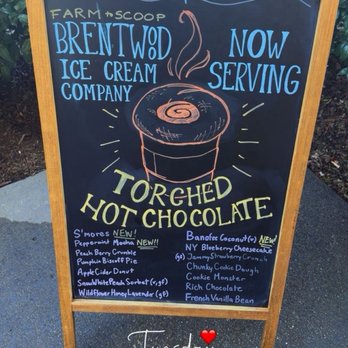 FARM to SCOOP
BRENTWOOD
ICE CREAM
COMPANY
NOW
SERVING
TORCHED
HOT CHOCOLATE
S'mores NEW!
Peppermint Mocha NEW!!
Peach Berry Crumble
Pumpkin Biscoff Pie
Apple Cider Donut
Snow White Peach Sorbet (v, gf)
Wildflower Honey Lavender (gf)
Banoffee Coconut (v) NEW!
NY Blueberry Cheesecake
(gf) Jammy Strawberry Crunch
Chunky Cookie Dough
Cookie Monster
Rich Chocolate
French Vanilla Bean
Tuesday